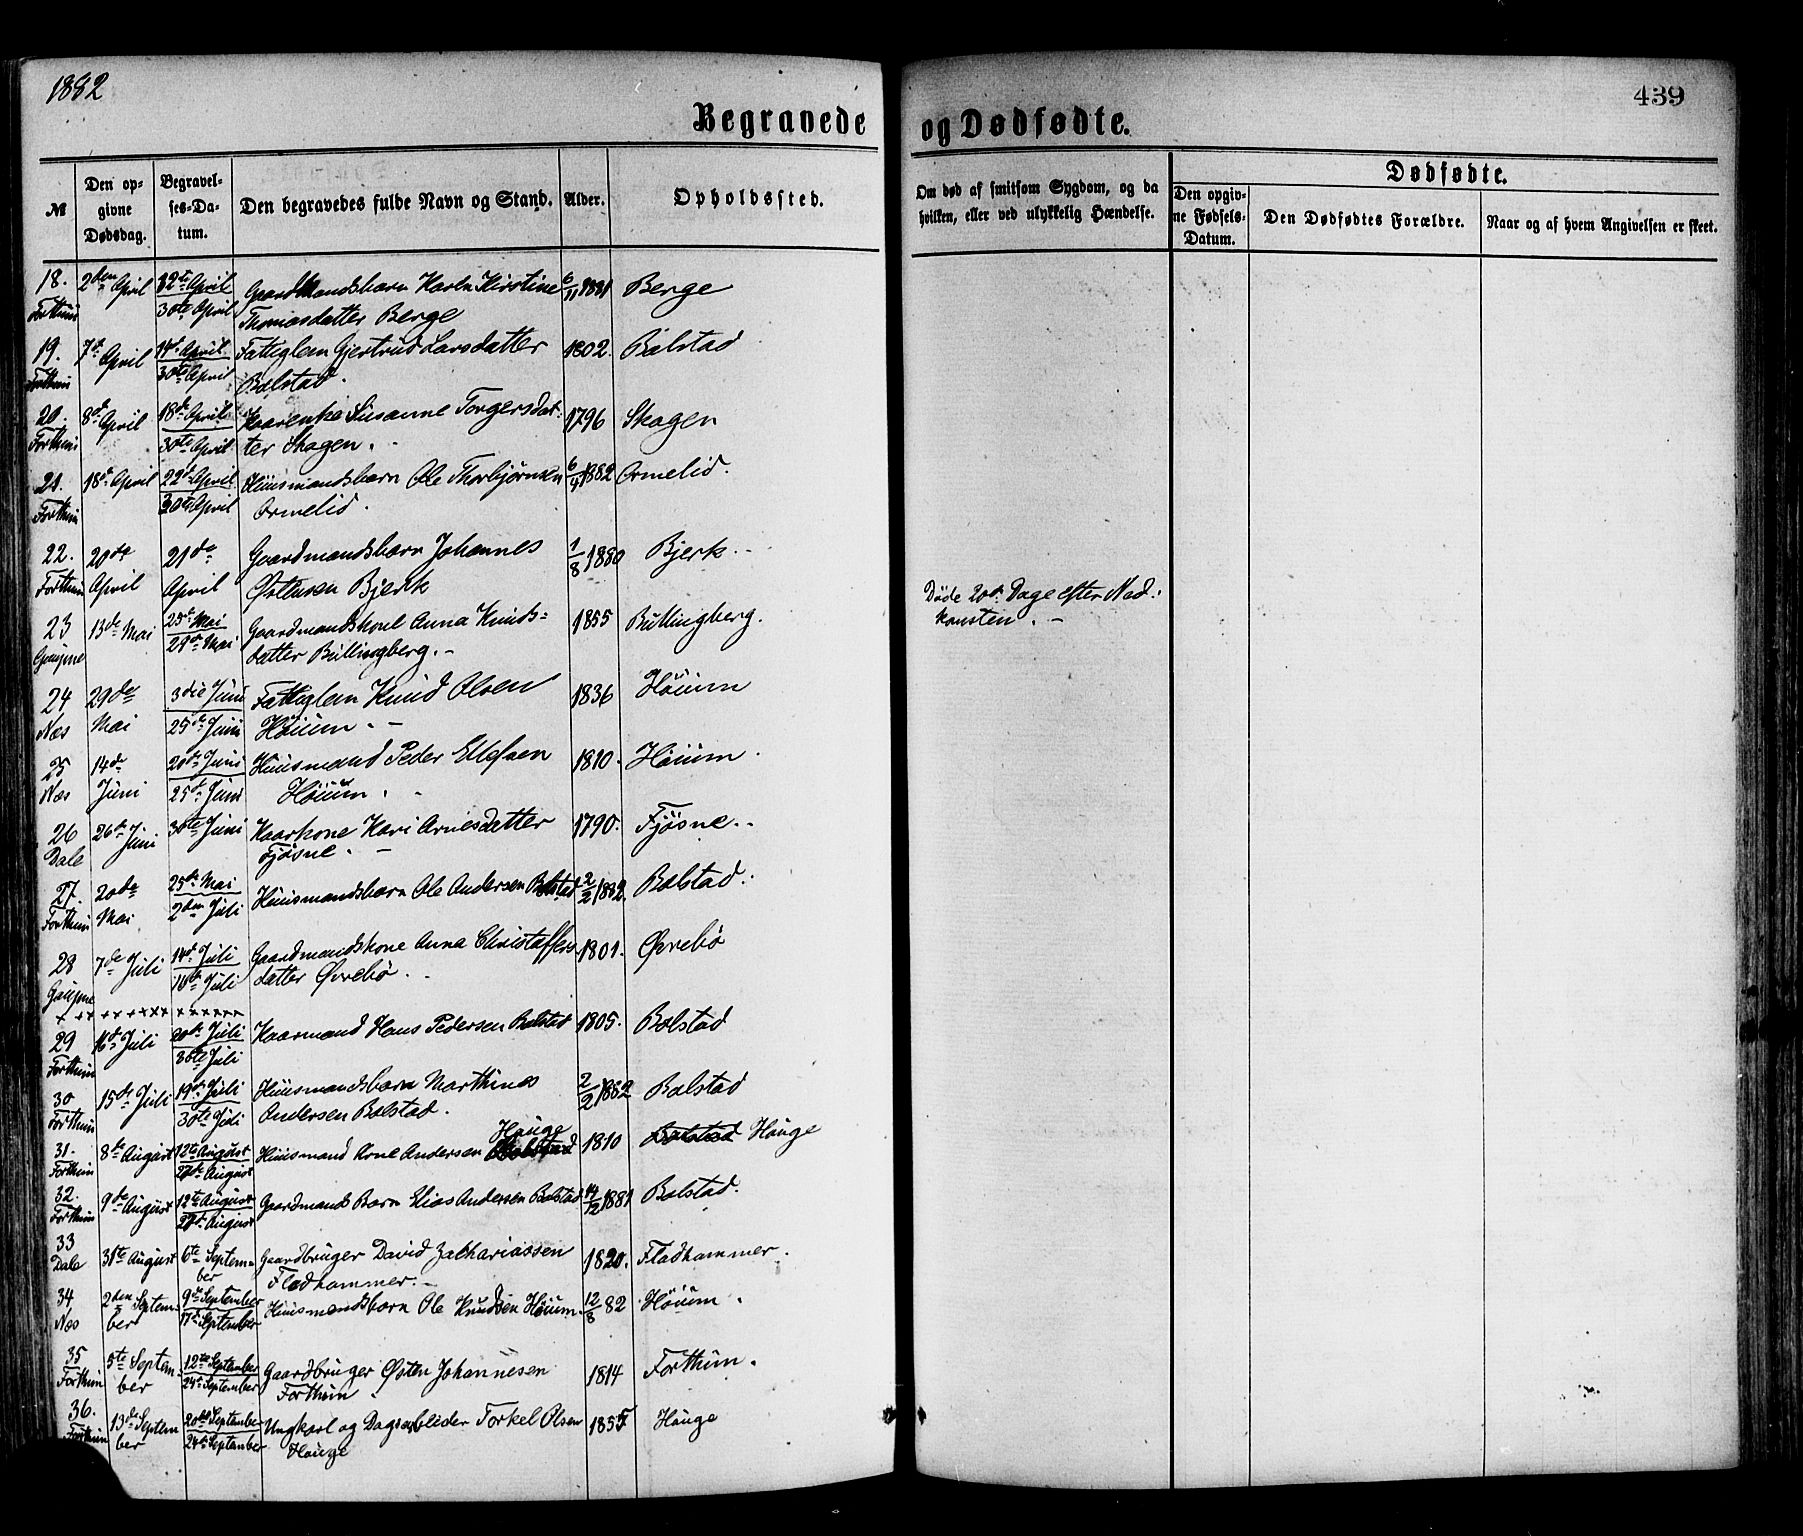 1882
439
Begravede og Dødfødte.
№
Den opgivne Dødsdag.
Begravelses-Datum.
Den begravedes fulde Navn og Stand.
Alder.
Opholdssted.
Om død af smitsom Sygdom, og da hvilken, eller ved ulykkelig Hændelse.
Dødfødte.
Den opgivne Fødsels-Datum.
Den Dødfødtes Forældre.
Naar og af hvem Angivelsen er skeet.
18. 2den April 12te April Gaardmandsbarn Karen Kirstine 6/11 1881 Berge
Forthun 30te April Thomasdatter Berge
19. 7de April 14de April Fattiglem Gjertrud Larsdatter 1802. Bolstad
Forthun 30te April Bolstad.
20. 8de April 18de April Susanne Torgersdat- 1796 Skagen
Forthun 30te April ter Skagen.
21. 18de April 22de April Huusmandsbarn Ole Thorbjørnsen 6/4 1882 Ormelid.
Forthun 30te April Ormelid.
22. 20de 21de Gaardmandsbarn Johannes 1/8 1880 Bjerk
Forthun April April Østensen Bjerk
23 13de Mai 25de Mai Gaardmandskone Anna Knuds- 1855 Bullingberg. Døde 20de Dage efter Ned-
Gaupne 29de Mai datter Bullingberg. komsten.
24 29de 3die Juni Fattiglem Knud Olsen 1836 Høium
Næs Mai 25de Juni Høium.
25 14de 20de Juni Huusmand Peder Ellefsen 1810. Høium.
Næs Juni 25de Juni Høium.
26 26de Juni 30te Juni Kaarkone Kari Arnesdatter 1790. Fjøsne.
Dale Fjøsne.
27. 20de 25de Mai Huusmandsbarn Ole Andersen Bolstad 2/2 1882. Bolstad.
Forthun Mai 2den Juli
28 7de Juli 14de Juli Gaardmandskone Anna Christaffers- 1801. Øvrebø
Gaupne 16de Juli datter Øvrebø.
29 16de Juli 20de Juli Kaarmand Hans Pedersen Bolstad 1805. Bolstad
Forthun 30te Juli
30 15de Juli 19de Juli Huusmandsbarn Marthinus 2/2 1882 Bolstad
Forthun 30te Juli Andersen Bolstad.
Hauge
31. 8de August 12te August Huusmand Arne Andersen Bolstad 1810 Bolstad Hauge
Forthun 27de August
32. 9de August 12te August Gaardmands Barn Elias Andersen Bolstad 14/12 1881 Bolstad.
Forthun 27de August
33 31te August 6te Septem- Gaardbruger David Zachariassen 1820. Fladhammer.
Dale ber Fladhammer.
34 2den Septem- 9de September Huusmandsbarn Ole Knudsen Høium. 12/8 82 Høium.
Næs ber 17de September
35 5te Septem- 12te September Gaardbruger Østen Johannesen 1814 Forthun.
Forthun ber 24de September Forthun
36. 13de Septem- 20de September Ungkarl og Dagsarbeider Torkel Olsen 1855 Hauge
Forthun ber 24de September Hauge